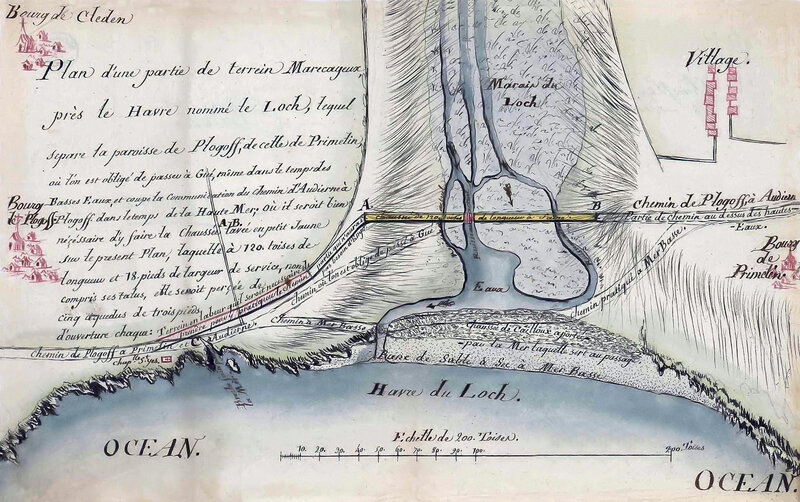 Bourg de Cleden
Plan d'une partie de terrein Marecageux
près le Havre nommé le Loch, lequel
separe la paroisse de Plogoff, de celle de Primelin,
où l'on est obligé de passer à Gué, même dans le temps des
Basses Eaux, et coupe la Communication du Chemin d'Audierne à
Plogoff dans le temps de la Haute Mer, où il seroit bien
nécéssaire d'y faire la Chaussée A.B. lavée en petit Jaune
sur le present Plan, laquelle à 120. toises de
longueur et 18. pieds de largeur de service, non
compris ses talus, elle seroit percée de
cinq aqueducs de trois pieds
d'ouverture chaque:
Bourg
de Plogoff
Marais du
Loch
Village.
A
Chaussée de 120 de longueur à
B
Chemin de Plogoff à Audierne
Partie de Chemin au dessus des hautes
Eaux.
Bourg
de
Primelin
Terrein
Chemin où l'on est obligé de passer à Gué
Chemin pratiqué à Mer Basse
Eaux
Chemin à Mer Basse
Chaussée de Cailloux apportés
par la Mer laquelle sert au passage
Banc de Sable à Mer Basse
Chemin de Plogoff à Primelin et Audierne
Havre du Loch.
Echelle de 200 Toises.
10. 20. 30. 40. 50. 60. 70. 80. 90. 100. 200 Toises
OCEAN.
OCEAN.